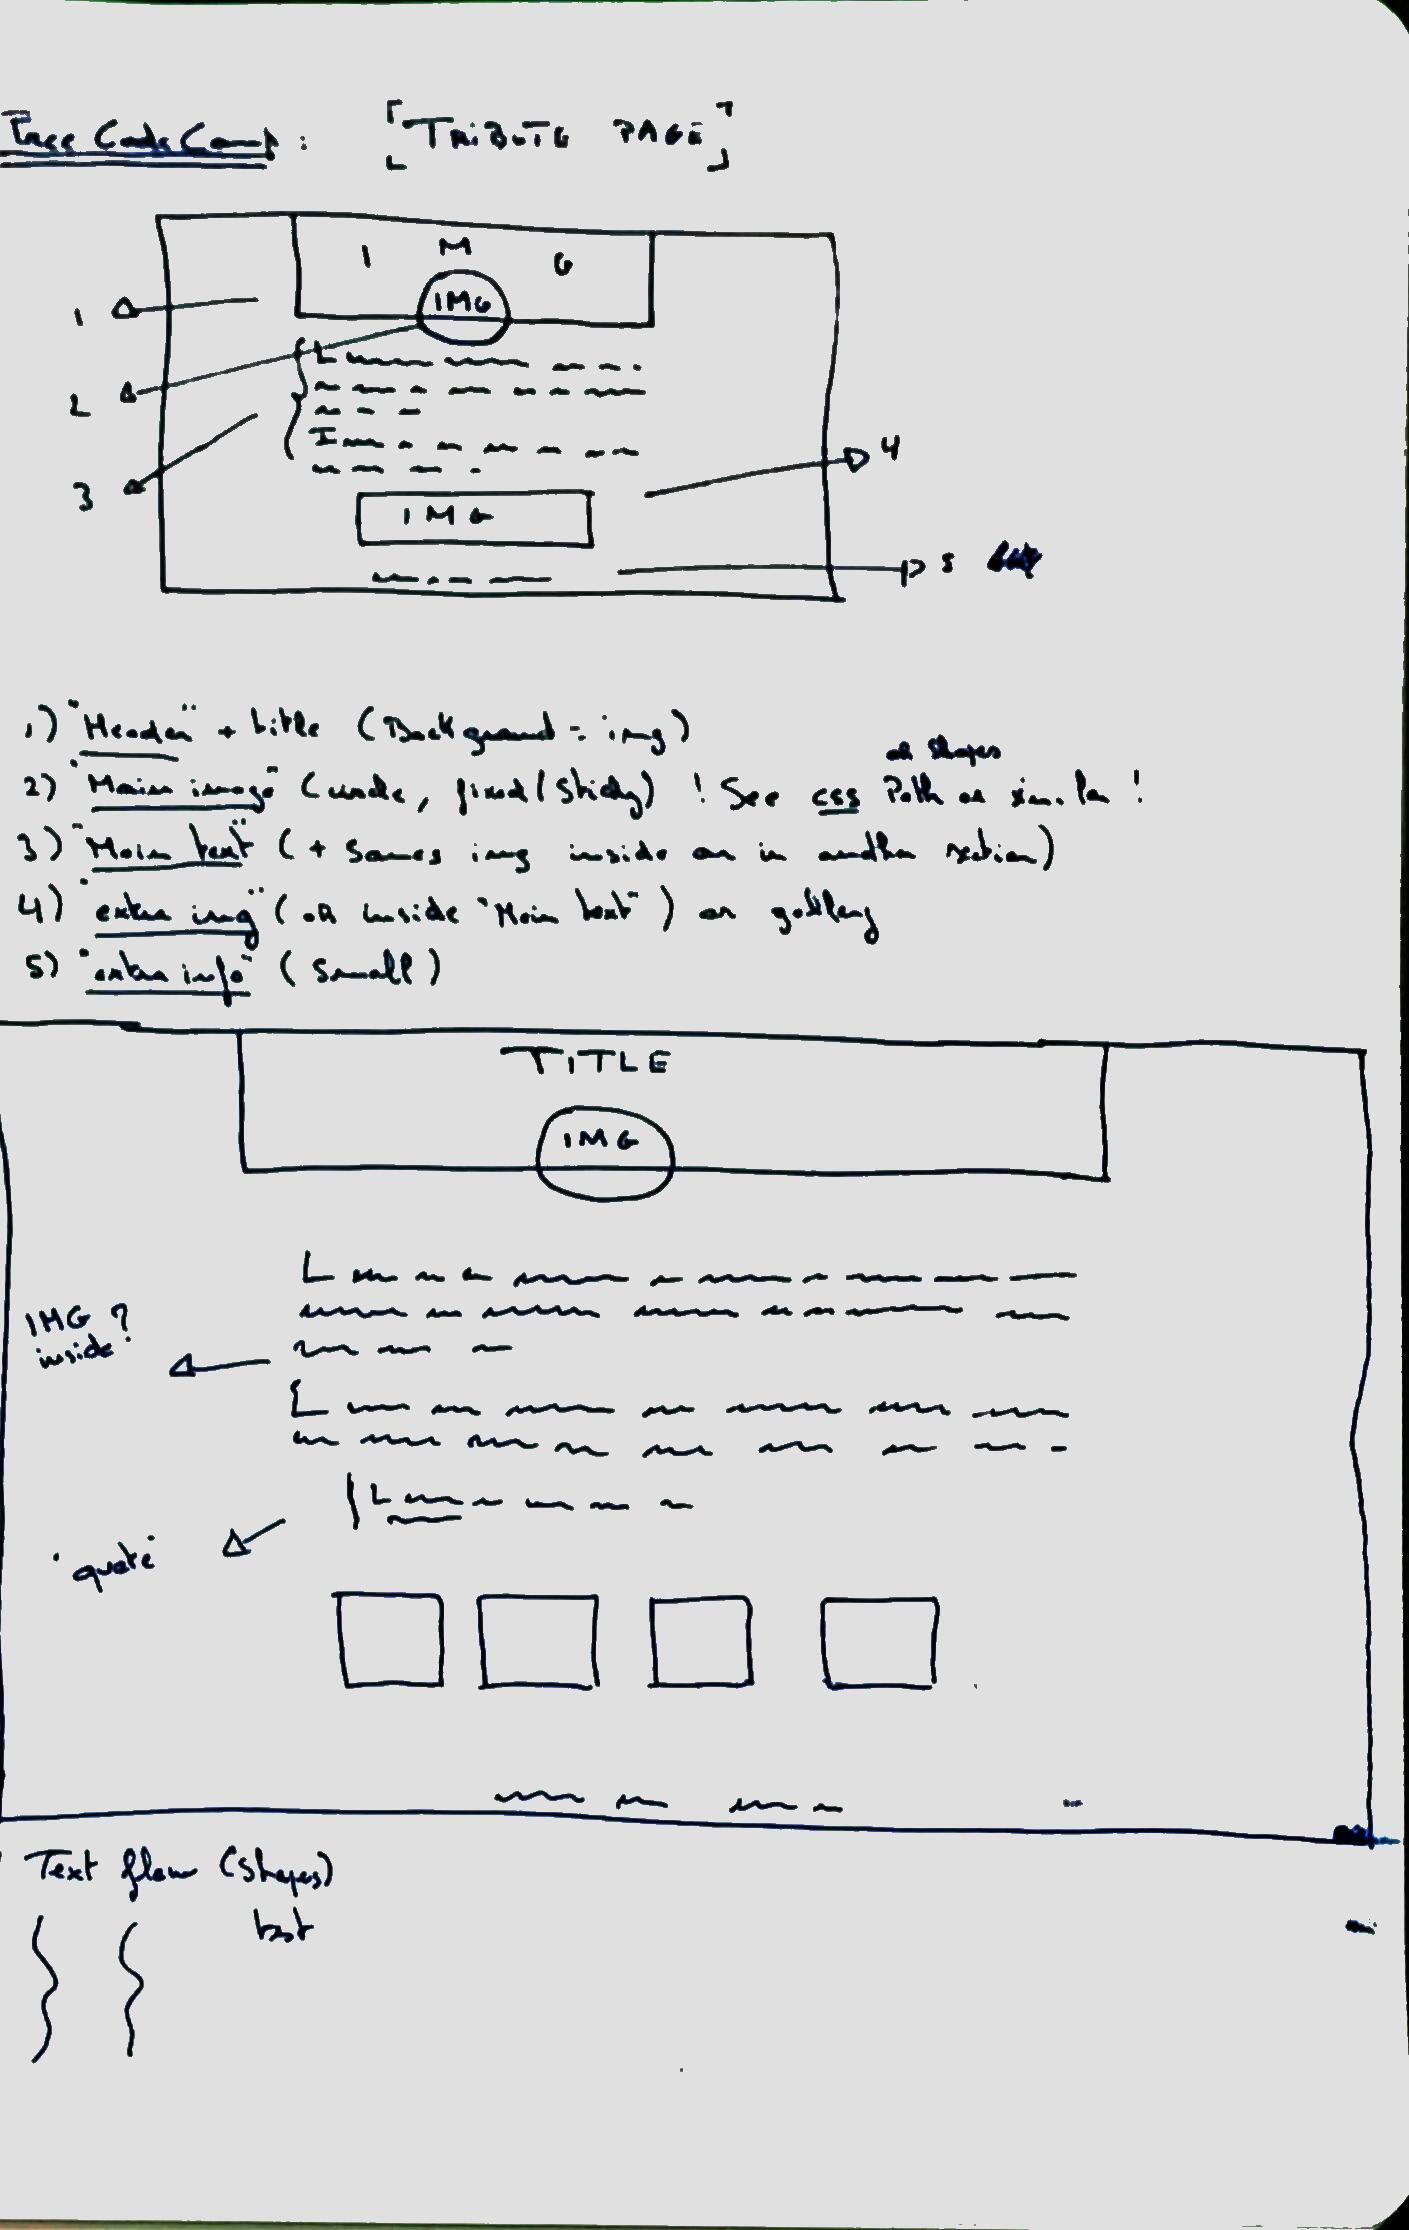 Free Code Camp : [TRIBUTE PAGE]
I M G
IMG
1
2
3
IMG
4
5
1) "Header" + title (Background = img)
or shapes
2) "Main image" (circle, fixed/sticky) ! See css Path or similar !
3) "Main text" (+ some img inside or in another section)
4) "extra img" (or inside "Main text") or gallery
5) "extra info" (small)
TITLE
IMG
IMG ?
inside?
"quote"
Text flow (shapes)